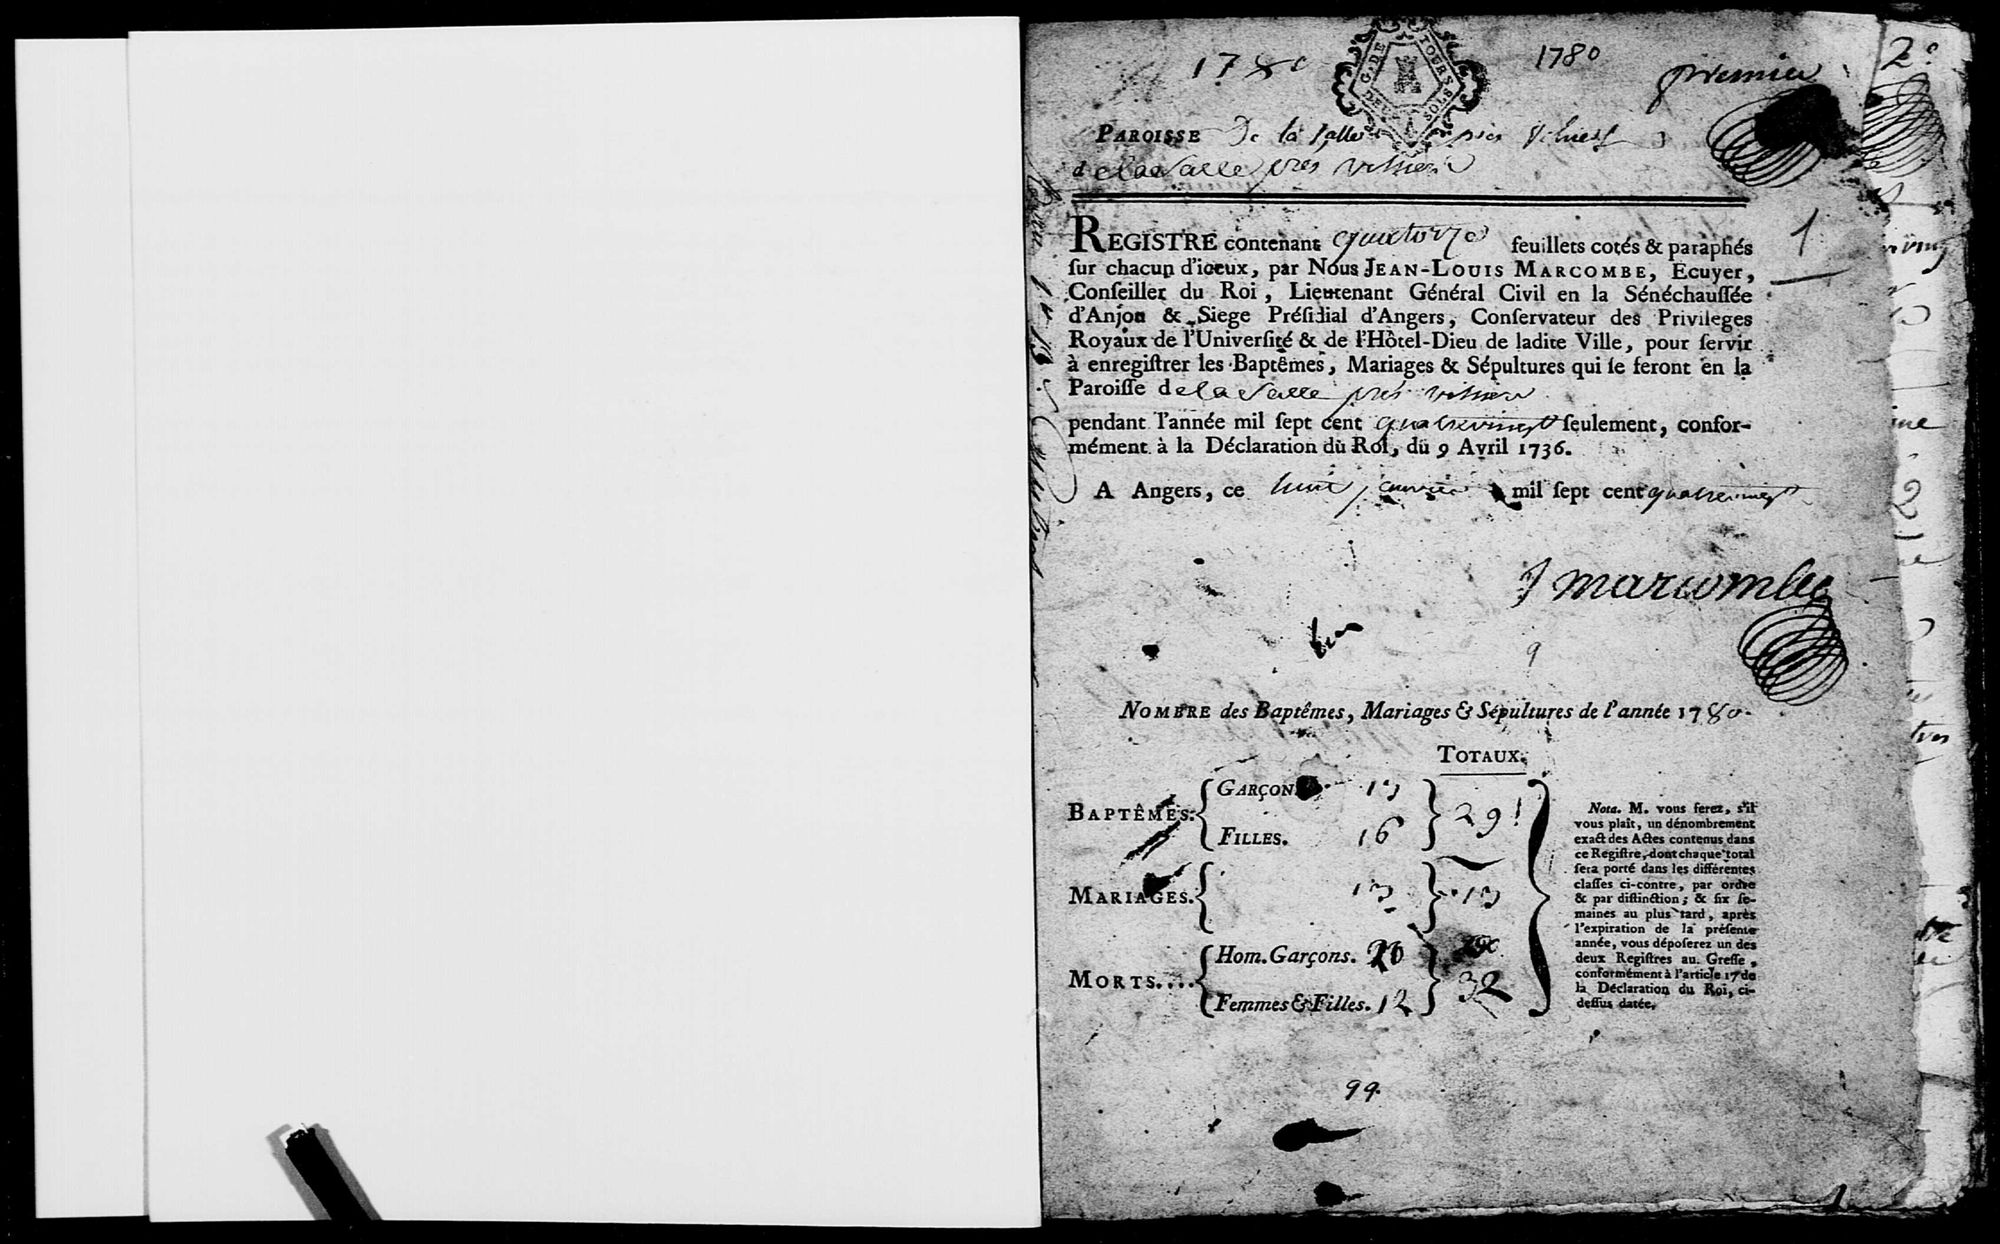 1780
1780
premier
2e
G. DE TOURS
DEUX SOLS
PAROISSE De la Salle près Vihiers
de la Salle près vihiers
1
REGISTRE contenant quatorze feuillets cotés & paraphés
ſur chacun d'iceux, par Nous JEAN-LOUIS MARCOMBE, Ecuyer,
Conſeiller du Roi, Lieutenant Général Civil en la Sénéchauſſée
d'Anjou & Siege Préſidial d'Angers, Conſervateur des Privileges
Royaux de l'Univerſité & de l'Hôtel-Dieu de ladite Ville, pour ſervir
à enregiſtrer les Baptêmes, Mariages & Sépultures qui ſe feront en la
Paroiſſe de la Salle près vihiers
pendant l'année mil ſept cent quatrevingt ſeulement, confor-
mément à la Déclaration du Roi, du 9 Avril 1736.
A Angers, ce huit janvier mil ſept cent quatrevingt
J marcombe
9
NOMBRE des Baptêmes, Mariages & Sépultures de l'année 1780.
TOTAUX.
BAPTÊMES. GARÇONS. 13
FILLES. 16 29
MARIAGES. 13 13
MORTS.... Hom. Garçons. 20
Femmes & Filles. 12 32
Nota. M. vous ferez, s'il
vous plaît, un dénombrement
exact des Actes contenus dans
ce Regiſtre, dont chaque total
ſera porté dans les différentes
claſſes ci-contre, par ordre
& par diſtinction; & ſix ſe-
maines au plus tard, après
l'expiration de la préſente
année, vous dépoſerez un des
deux Regiſtres au Greffe,
conformément à l'article 17 de
la Déclaration du Roi, ci-
deſſus datée.
99.